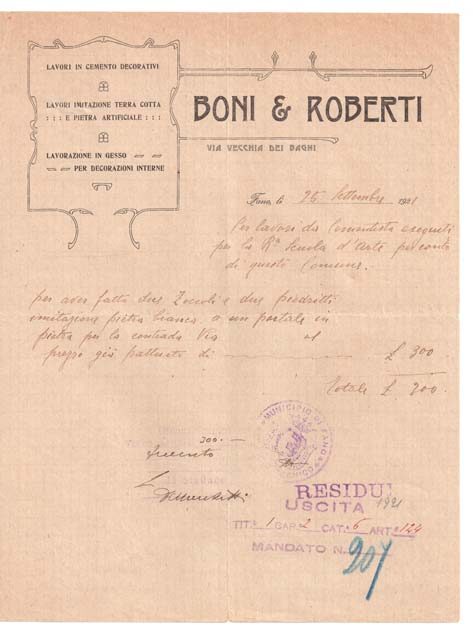 LAVORI IN CEMENTO DECORATIVI
LAVORI IMITAZIONE TERRA COTTA
: : : E PIETRA ARTIFICIALE : : :
LAVORAZIONE IN GESSO
PER DECORAZIONI INTERNE
BONI & ROBERTI
VIA VECCHIA DEI BAGNI
Fano, li 25 Settembre 1921
Per lavori da Cementista eseguiti
per la Rª Scuola d'Arte per conto
di questo Comune.
per aver fatto due Zoccoli e due piedritti
imitazione pietra bianca a un portale in
pietra per la contrada Via
prezzo già pattuito di £ 300
Totale £ 300
300.-
MUNICIPIO DI FANO
Il Sindaco
RESIDUI
USCITA 1921
TIT.º 1 CAP. 2 CAT.ª 6 ART.º 124
MANDATO N.
207